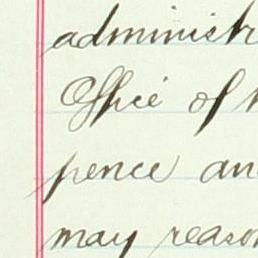 administr
Office of
pence an
may reason